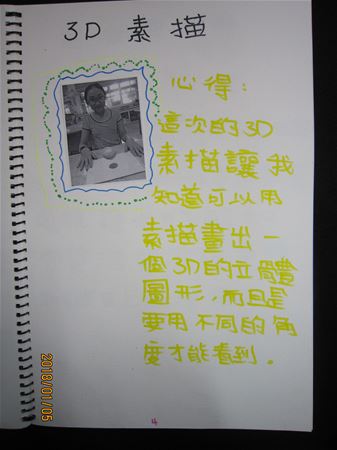 3D 素描
心得:
這次的3D
素描讓我
知道可以用
素描畫出一
個3D的立體
圖形,而且是
要用不同的角
度才能看到。
2018/01/05
4